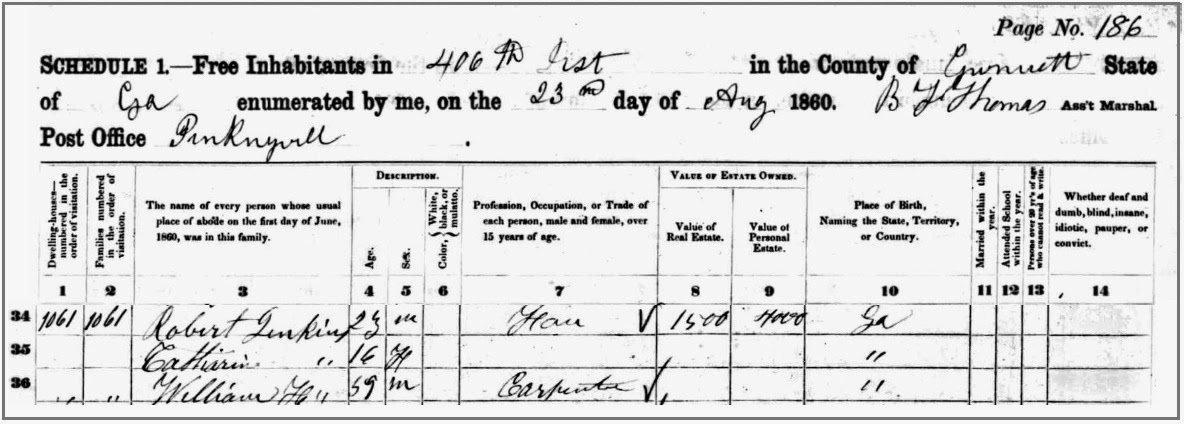 Page No. 186
SCHEDULE 1.—Free Inhabitants in 406th Dist in the County of Gwinnett State
of Ga enumerated by me, on the 23rd day of Aug 1860. B F Thomas Ass't Marshal.
Post Office Pinknyvill.
Dwelling-houses—numbered in the order of visitation.
Families numbered in the order of visitation.
The name of every person whose usual place of abode on the first day of June, 1860, was in this family.
DESCRIPTION.
Age.
Sex.
Color, White, black, or mulatto.
Profession, Occupation, or Trade of each person, male and female, over 15 years of age.
VALUE OF ESTATE OWNED.
Value of Real Estate.
Value of Personal Estate.
Place of Birth, Naming the State, Territory, or Country.
Married within the year.
Attended School within the year.
Persons over 20 yr's of age who cannot read & write.
Whether deaf and dumb, blind, insane, idiotic, pauper, or convict.
1 2 3 4 5 6 7 8 9 10 11 12 13 14
34 1061 1061 Robert Jenkins 23 m 1500 4000 Ga
35 Catharin " 16 f "
36 " " William H " 59 m Carpenter "